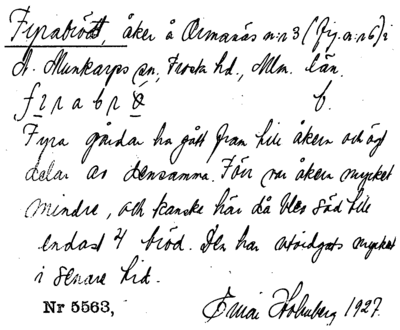 Fyrabrödt, åker å Ormanäs n:r 3 (fig. a: n 6) i
N. Munkarps sn, Frosta hd., Mlm. län.
f r a b r b.
Fyra gårdar ha gått fram till åkern och ägt
delar av densamma. Förr var åkern mycket
mindre, och kanske här då blev säd till
endast 4 bröd. Den har utvidgats mycket
i senare tid.
Nr 5563, Holmberg 1927.